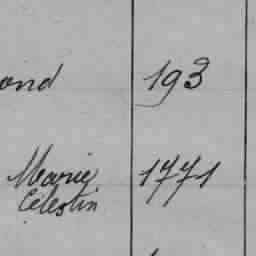 ond 193
Marie 1771
Célestin